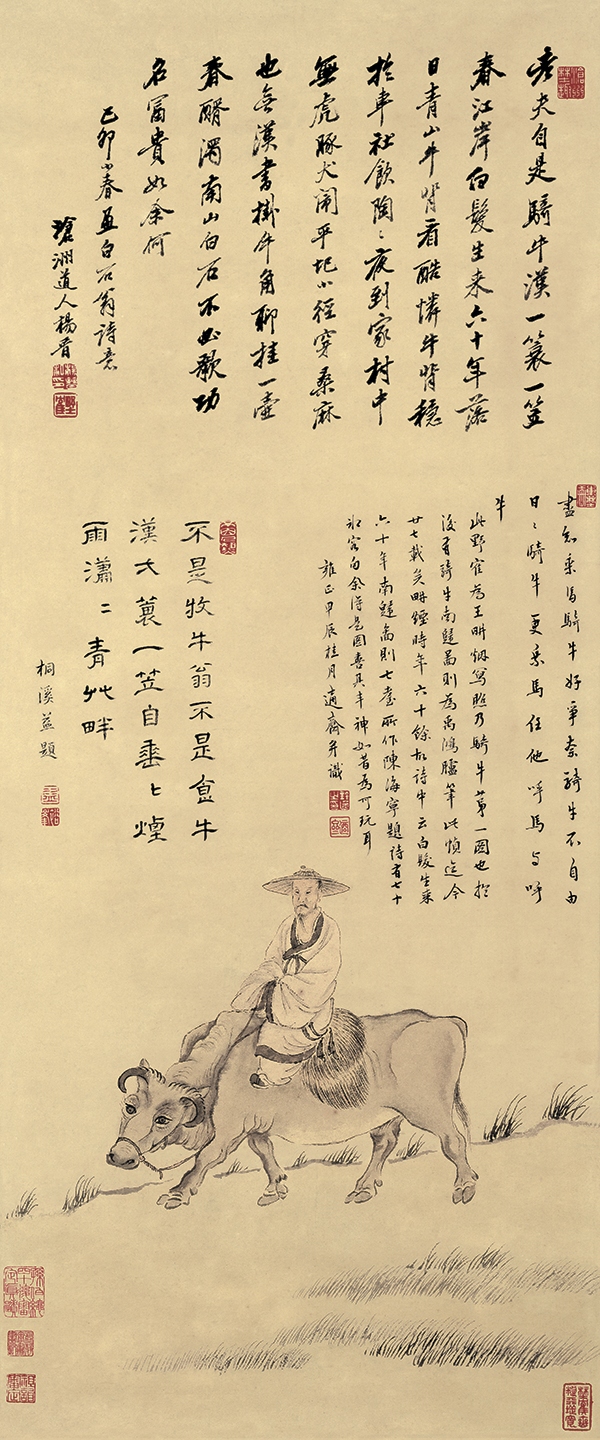 老夫自是騎牛漢一簑一笠
春江岸白髮生来六十年落
日青山牛背看酷憐牛背穩
於車社飲陶〻夜到家村中
無虎豚犬閙平圯小徑穿桑麻
也無漢書掛牛角聊挂一壺
春醑濁南山白石不必歌功
名富貴如余何
己卯小春並白石翁詩意
滄洲道人楊晉
盡知乘馬騎牛好爭奈騎牛不自由
日〻騎牛更乘馬任他呼馬与呼
牛
此野隺為王畊烟寫照乃騎牛苐一圖也於
後有騎牛南還啚則為禹鴻臚筆此幀迄今
廿七載矣畊煙時年六十餘故詩中云白髮生来
六十年南還啚則七耋所作陳海寧題詩有七十
句余得是圖喜具丰神如昔為可玩耳
雍正甲辰桂月適齋并識
不是牧牛翁不是食牛
漢蓑一笠自垂〻煙
雨瀟〻青艸畔
桐溪益題